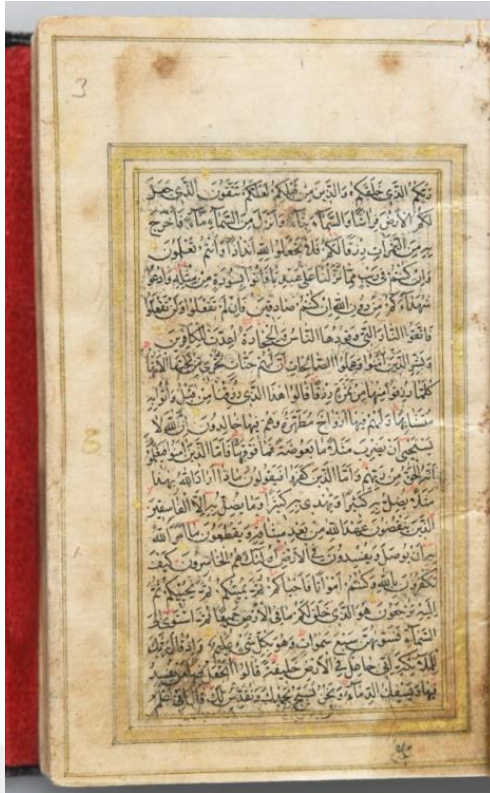 3
ربكم الذي خلقكم والذين من قبلكم لعلكم تتقون الذي جعل
لكم الأرض فراشا والسماء بناء وأنزل من السماء ماء فأخرج
به من الثمرات رزقا لكم فلا تجعلوا لله أندادا وأنتم تعلمون
وإن كنتم في ريب مما نزلنا على عبدنا فأتوا بسورة من مثله وادعوا
شهداءكم من دون الله إن كنتم صادقين فإن لم تفعلوا ولن تفعلوا
فاتقوا النار التي وقودها الناس والحجارة أعدت للكافرين
وبشر الذين آمنوا وعملوا الصالحات أن لهم جنات تجري من تحتها الأنهار
كلما رزقوا منها من ثمرة رزقا قالوا هذا الذي رزقنا من قبل وأتوا به
متشابها ولهم فيها أزواج مطهرة وهم فيها خالدون إن الله لا
يستحيي أن يضرب مثلا ما بعوضة فما فوقها فأما الذين آمنوا فيعلمون
أنه الحق من ربهم وأما الذين كفروا فيقولون ماذا أراد الله بهذا
مثلا يضل به كثيرا ويهدي به كثيرا وما يضل به إلا الفاسقين
الذين ينقضون عهد الله من بعد ميثاقه ويقطعون ما أمر الله
به أن يوصل ويفسدون في الأرض أولئك هم الخاسرون كيف
تكفرون بالله وكنتم أمواتا فأحياكم ثم يميتكم ثم يحييكم ثم
إليه ترجعون هو الذي خلق لكم ما في الأرض جميعا ثم استوى إلى
السماء فسويهن سبع سموات وهو بكل شيء عليم وإذ قال ربك
للملئكة إني جاعل في الأرض خليفة قالوا أتجعل فيها من يفسد
فيها ويسفك الدماء ونحن نسبح بحمدك ونقدس لك قال إني أعلم